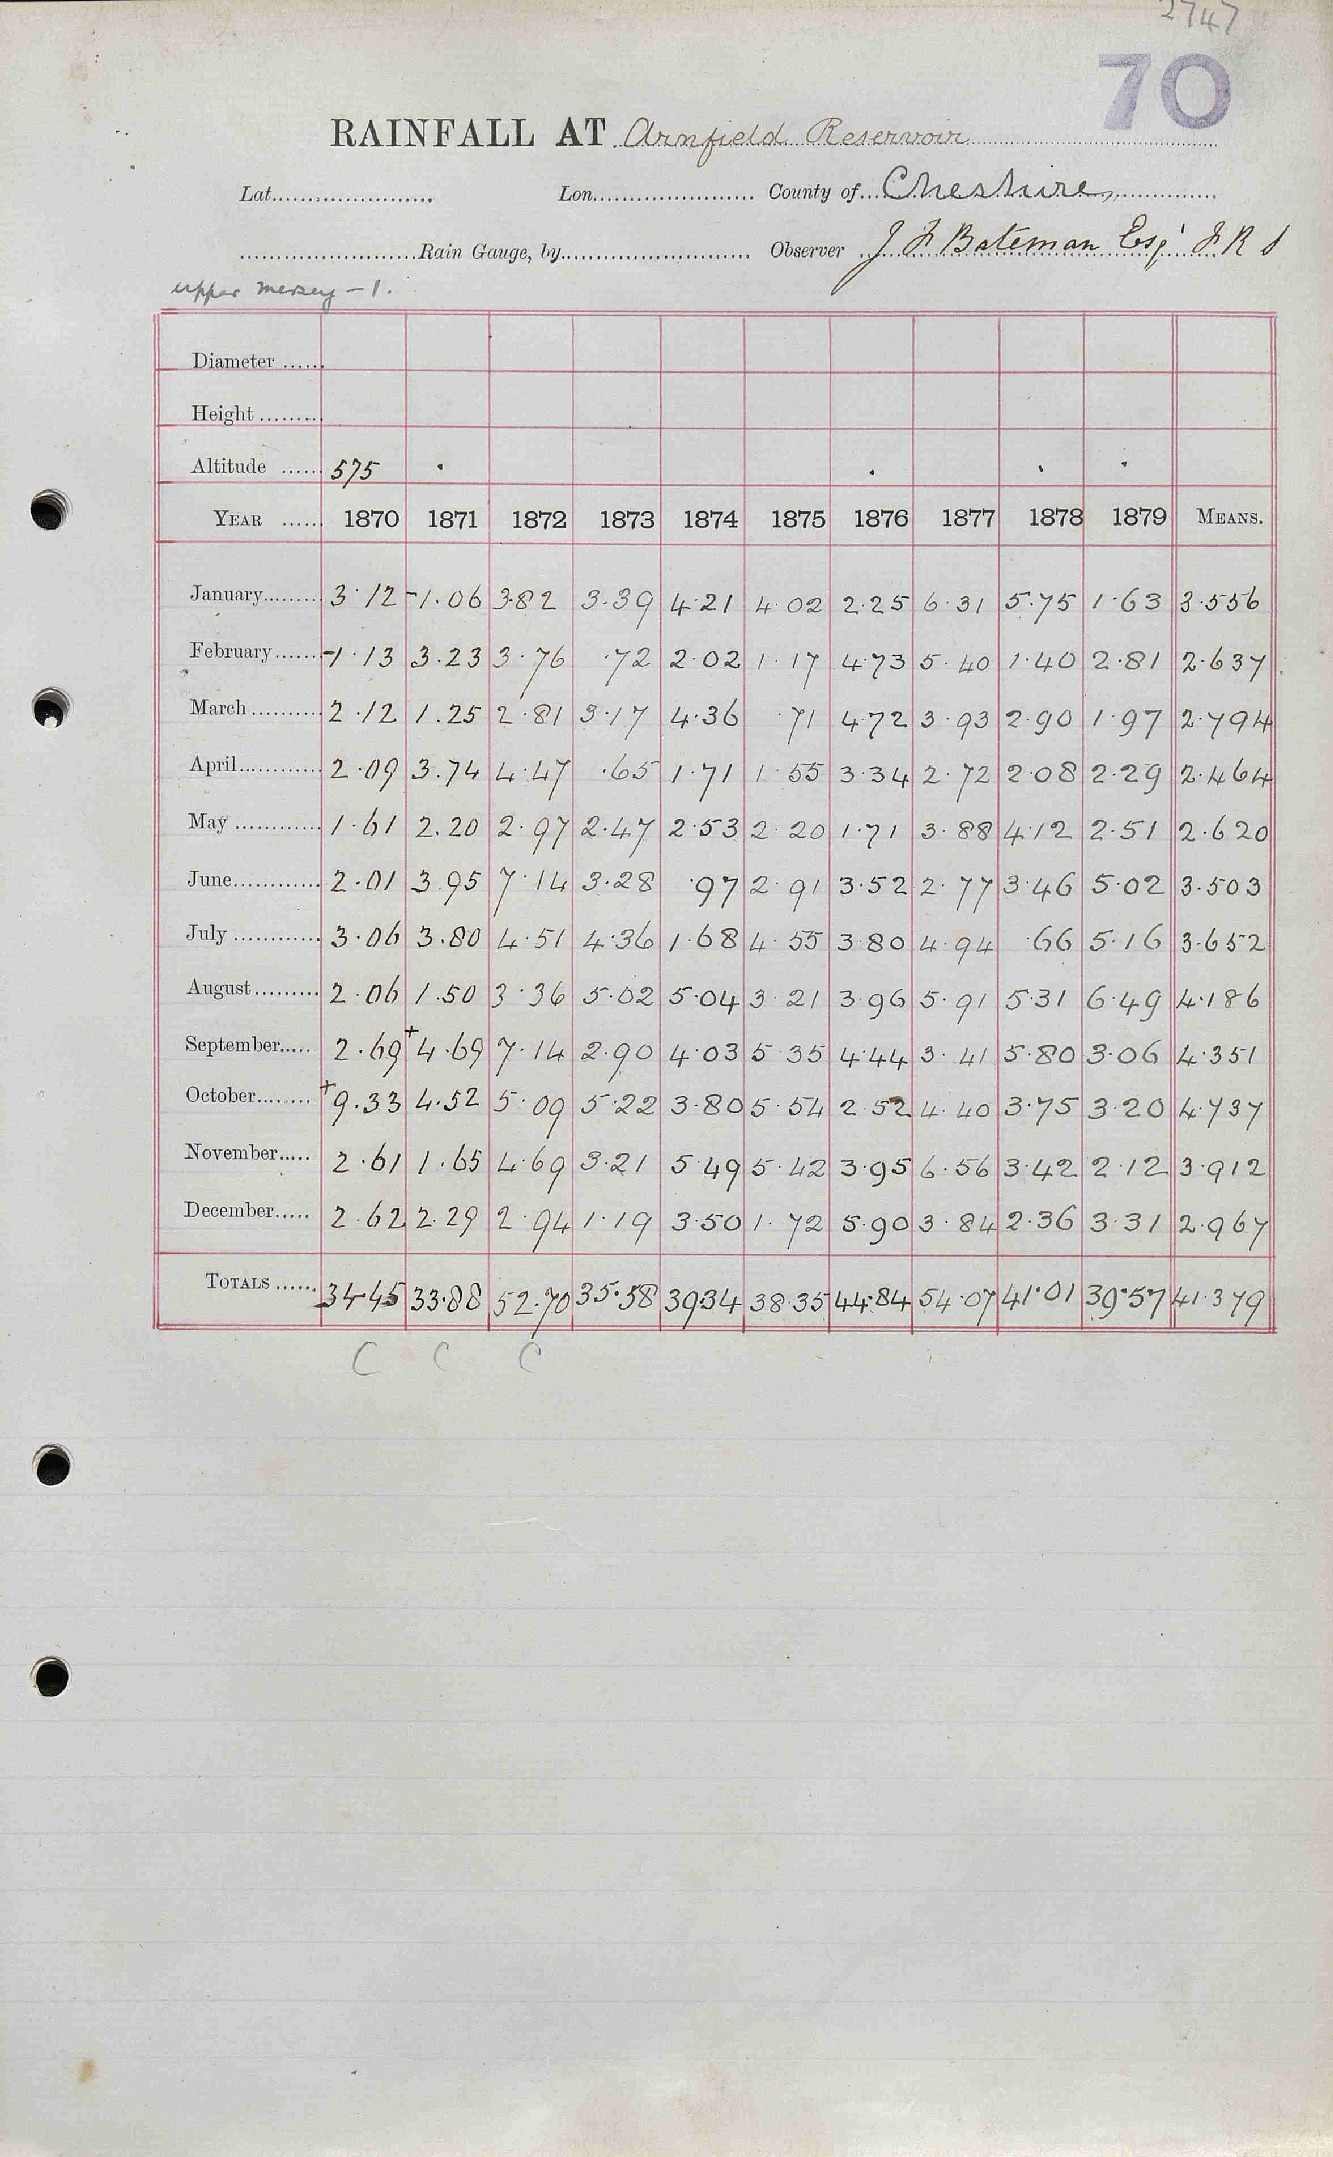 2747
70
RAINFALL AT Arnfield Reservoir
Lat. Lon. County of Cheshire
Rain Gauge, by Observer J F Bateman Esq F R S
upper mersey - 1.
Diameter
Height
Altitude 575
YEAR 1870 1871 1872 1873 1874 1875 1876 1877 1878 1879 MEANS.
January 3.12 -1.06 3.82 3.39 4.21 4.02 2.25 6.31 5.75 1.63 3.556
February -1.13 3.23 3.76 .72 2.02 1.17 4.73 5.40 1.40 2.81 2.637
March 2.12 1.25 2.81 3.17 4.36 .71 4.72 3.93 2.90 1.97 2.794
April 2.09 3.74 4.47 .65 1.71 1.55 3.34 2.72 2.08 2.29 2.464
May 1.61 2.20 2.97 2.47 2.53 2.20 1.71 3.88 4.12 2.51 2.620
June 2.01 3.95 7.14 3.28 .97 2.91 3.52 2.77 3.46 5.02 3.503
July 3.06 3.80 4.51 4.36 1.68 4.55 3.80 4.94 .66 5.16 3.652
August 2.06 1.50 3.36 5.02 5.04 3.21 3.96 5.91 5.31 6.49 4.186
September 2.69 +4.69 7.14 2.90 4.03 5.35 4.44 3.41 5.80 3.06 4.351
October +9.33 4.52 5.09 5.22 3.80 5.54 2.52 4.40 3.75 3.20 4.737
November 2.61 1.65 4.69 3.21 5.49 5.42 3.95 6.56 3.42 2.12 3.912
December 2.62 2.29 2.94 1.19 3.50 1.72 5.90 3.84 2.36 3.31 2.967
TOTALS 34.45 33.88 52.70 35.58 39.34 38.35 44.84 54.07 41.01 39.57 41.379
C C C